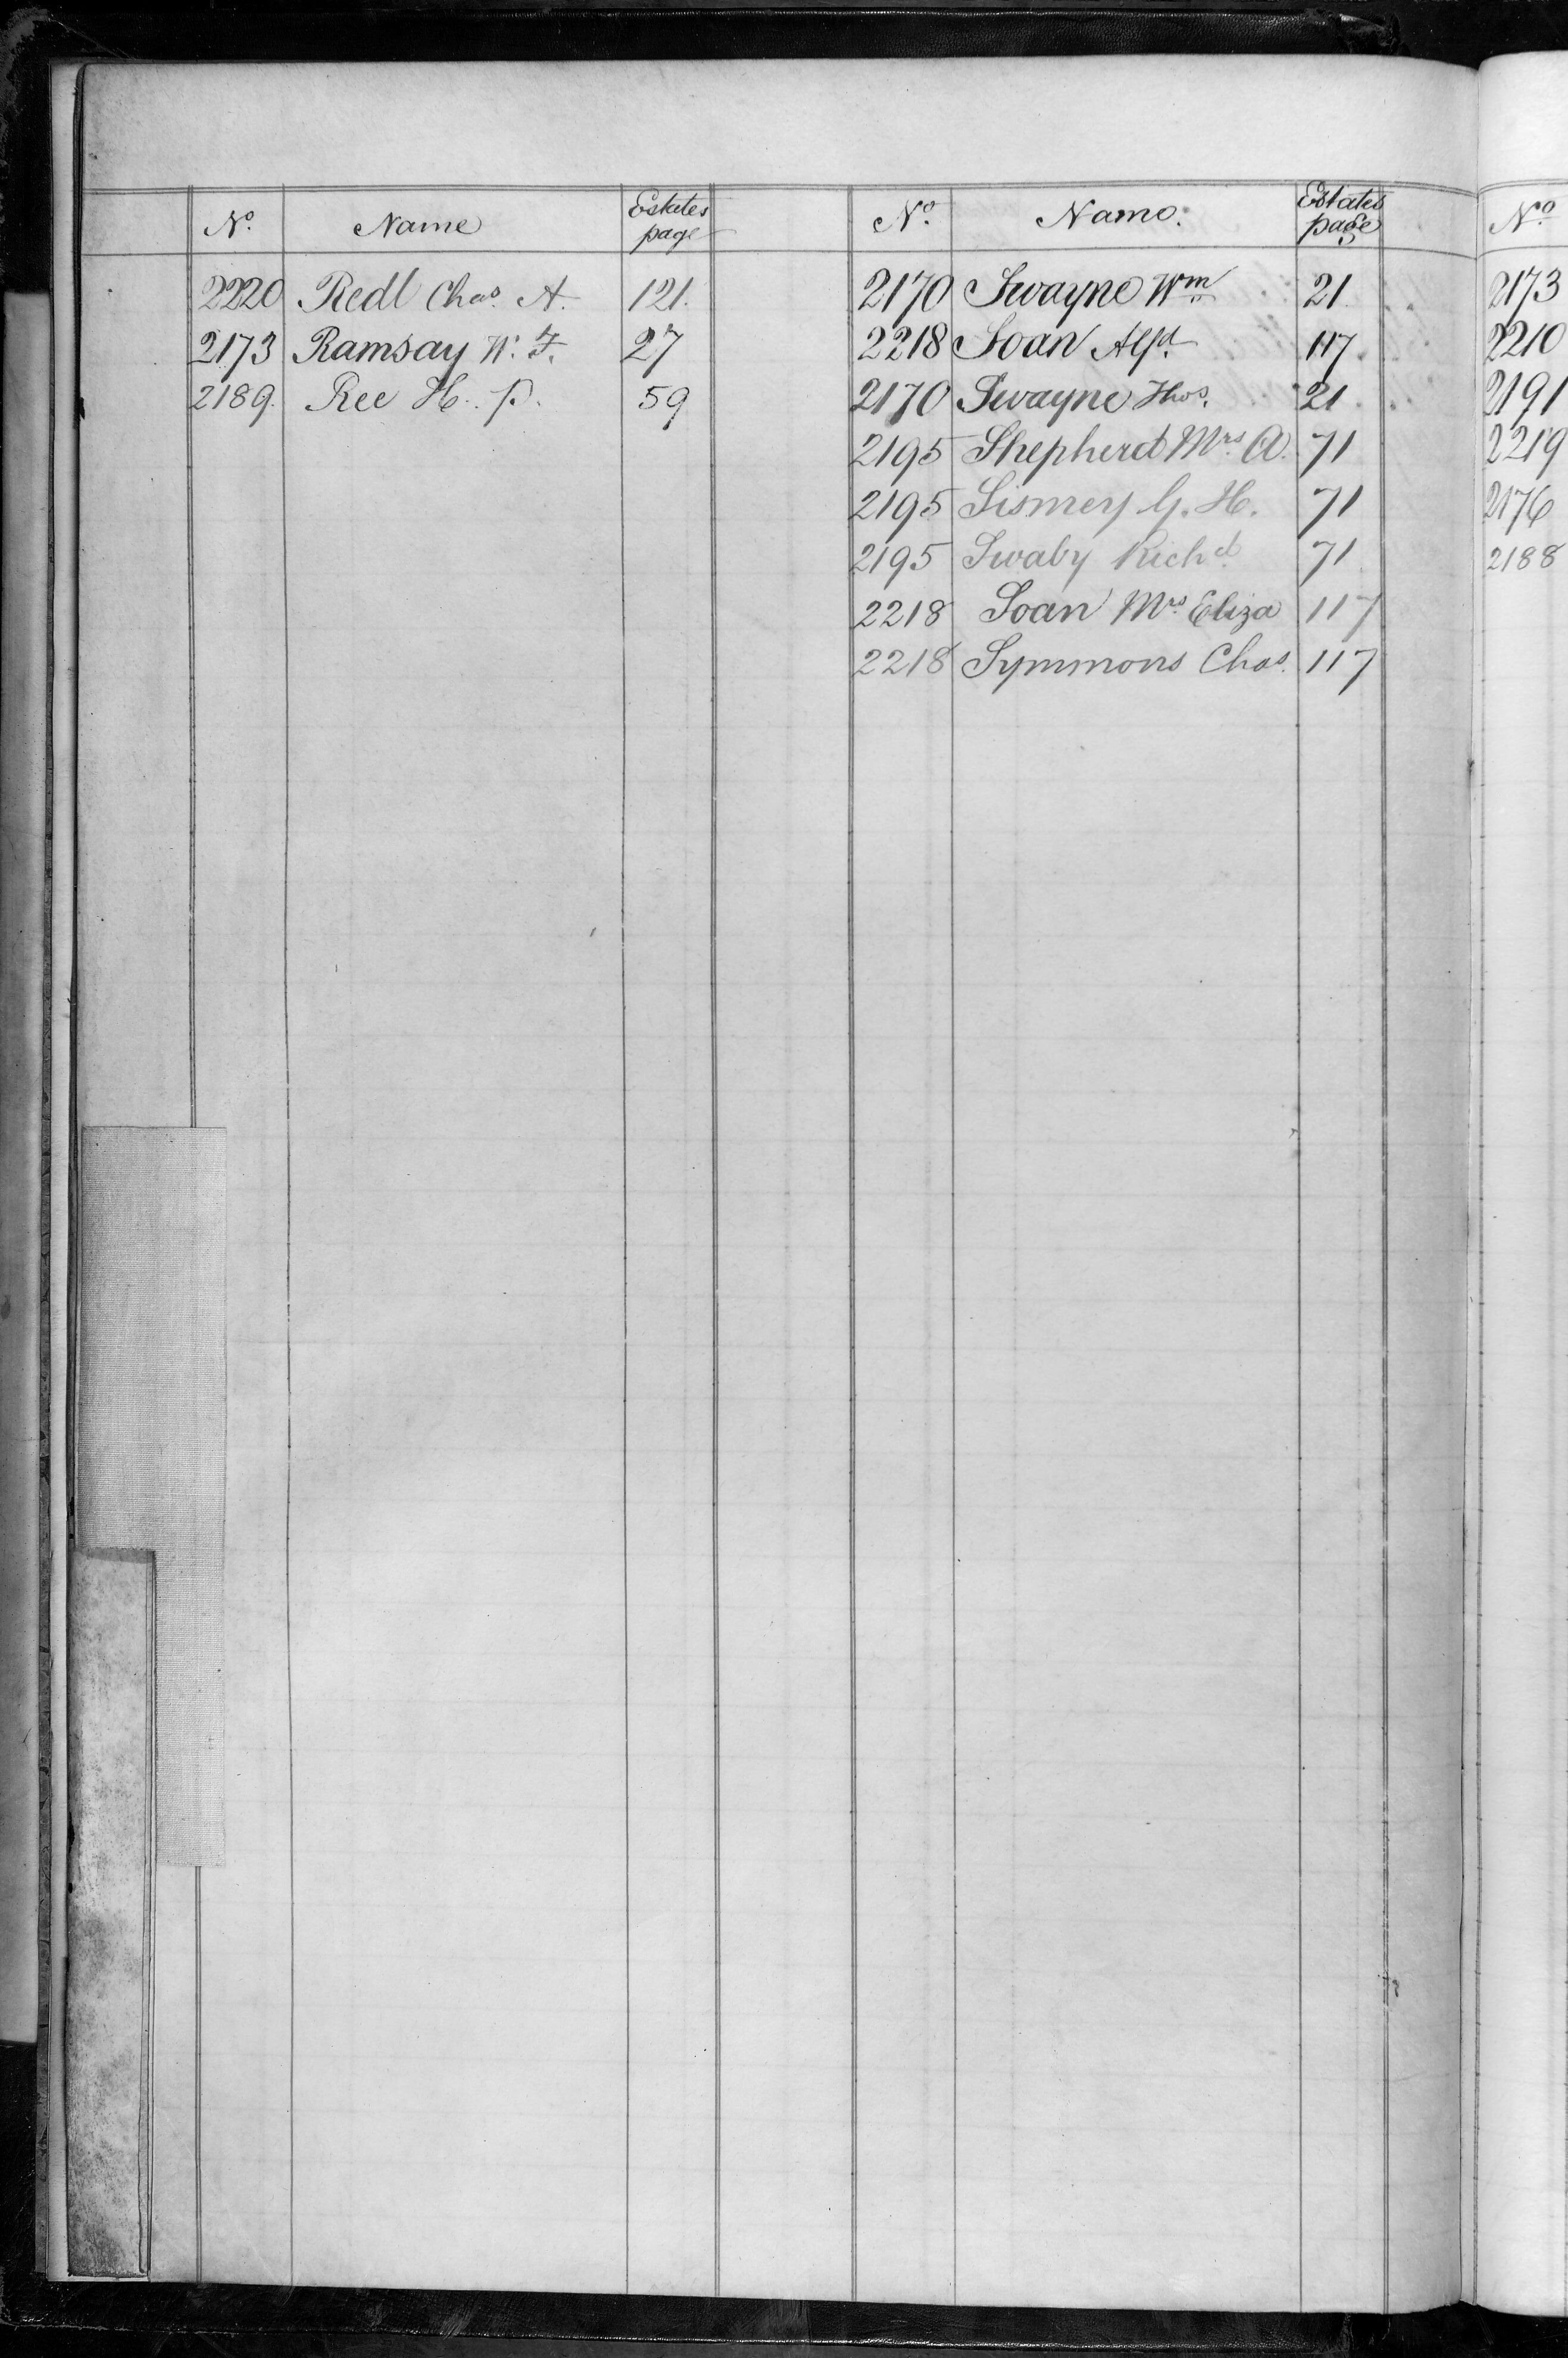 No. Name Estates page
2220 Redl Chas. A. 121.
2173 Ramsay W. F. 27
2189. Ree H. P. 59
No. Name. Estates page
2170 Swayne Wm 21
2218 Soan Alfd. 117.
2170 Swayne Thos. 21.
2195 Shepherd Mrs. A. 71
2195 Sismey G. H. 71
2195 Swaby Richd. 71
2218 Soan Mrs. Eliza 117
2218 Symmons Chas. 117
No
2173
2210
2191
2219
2176
2188